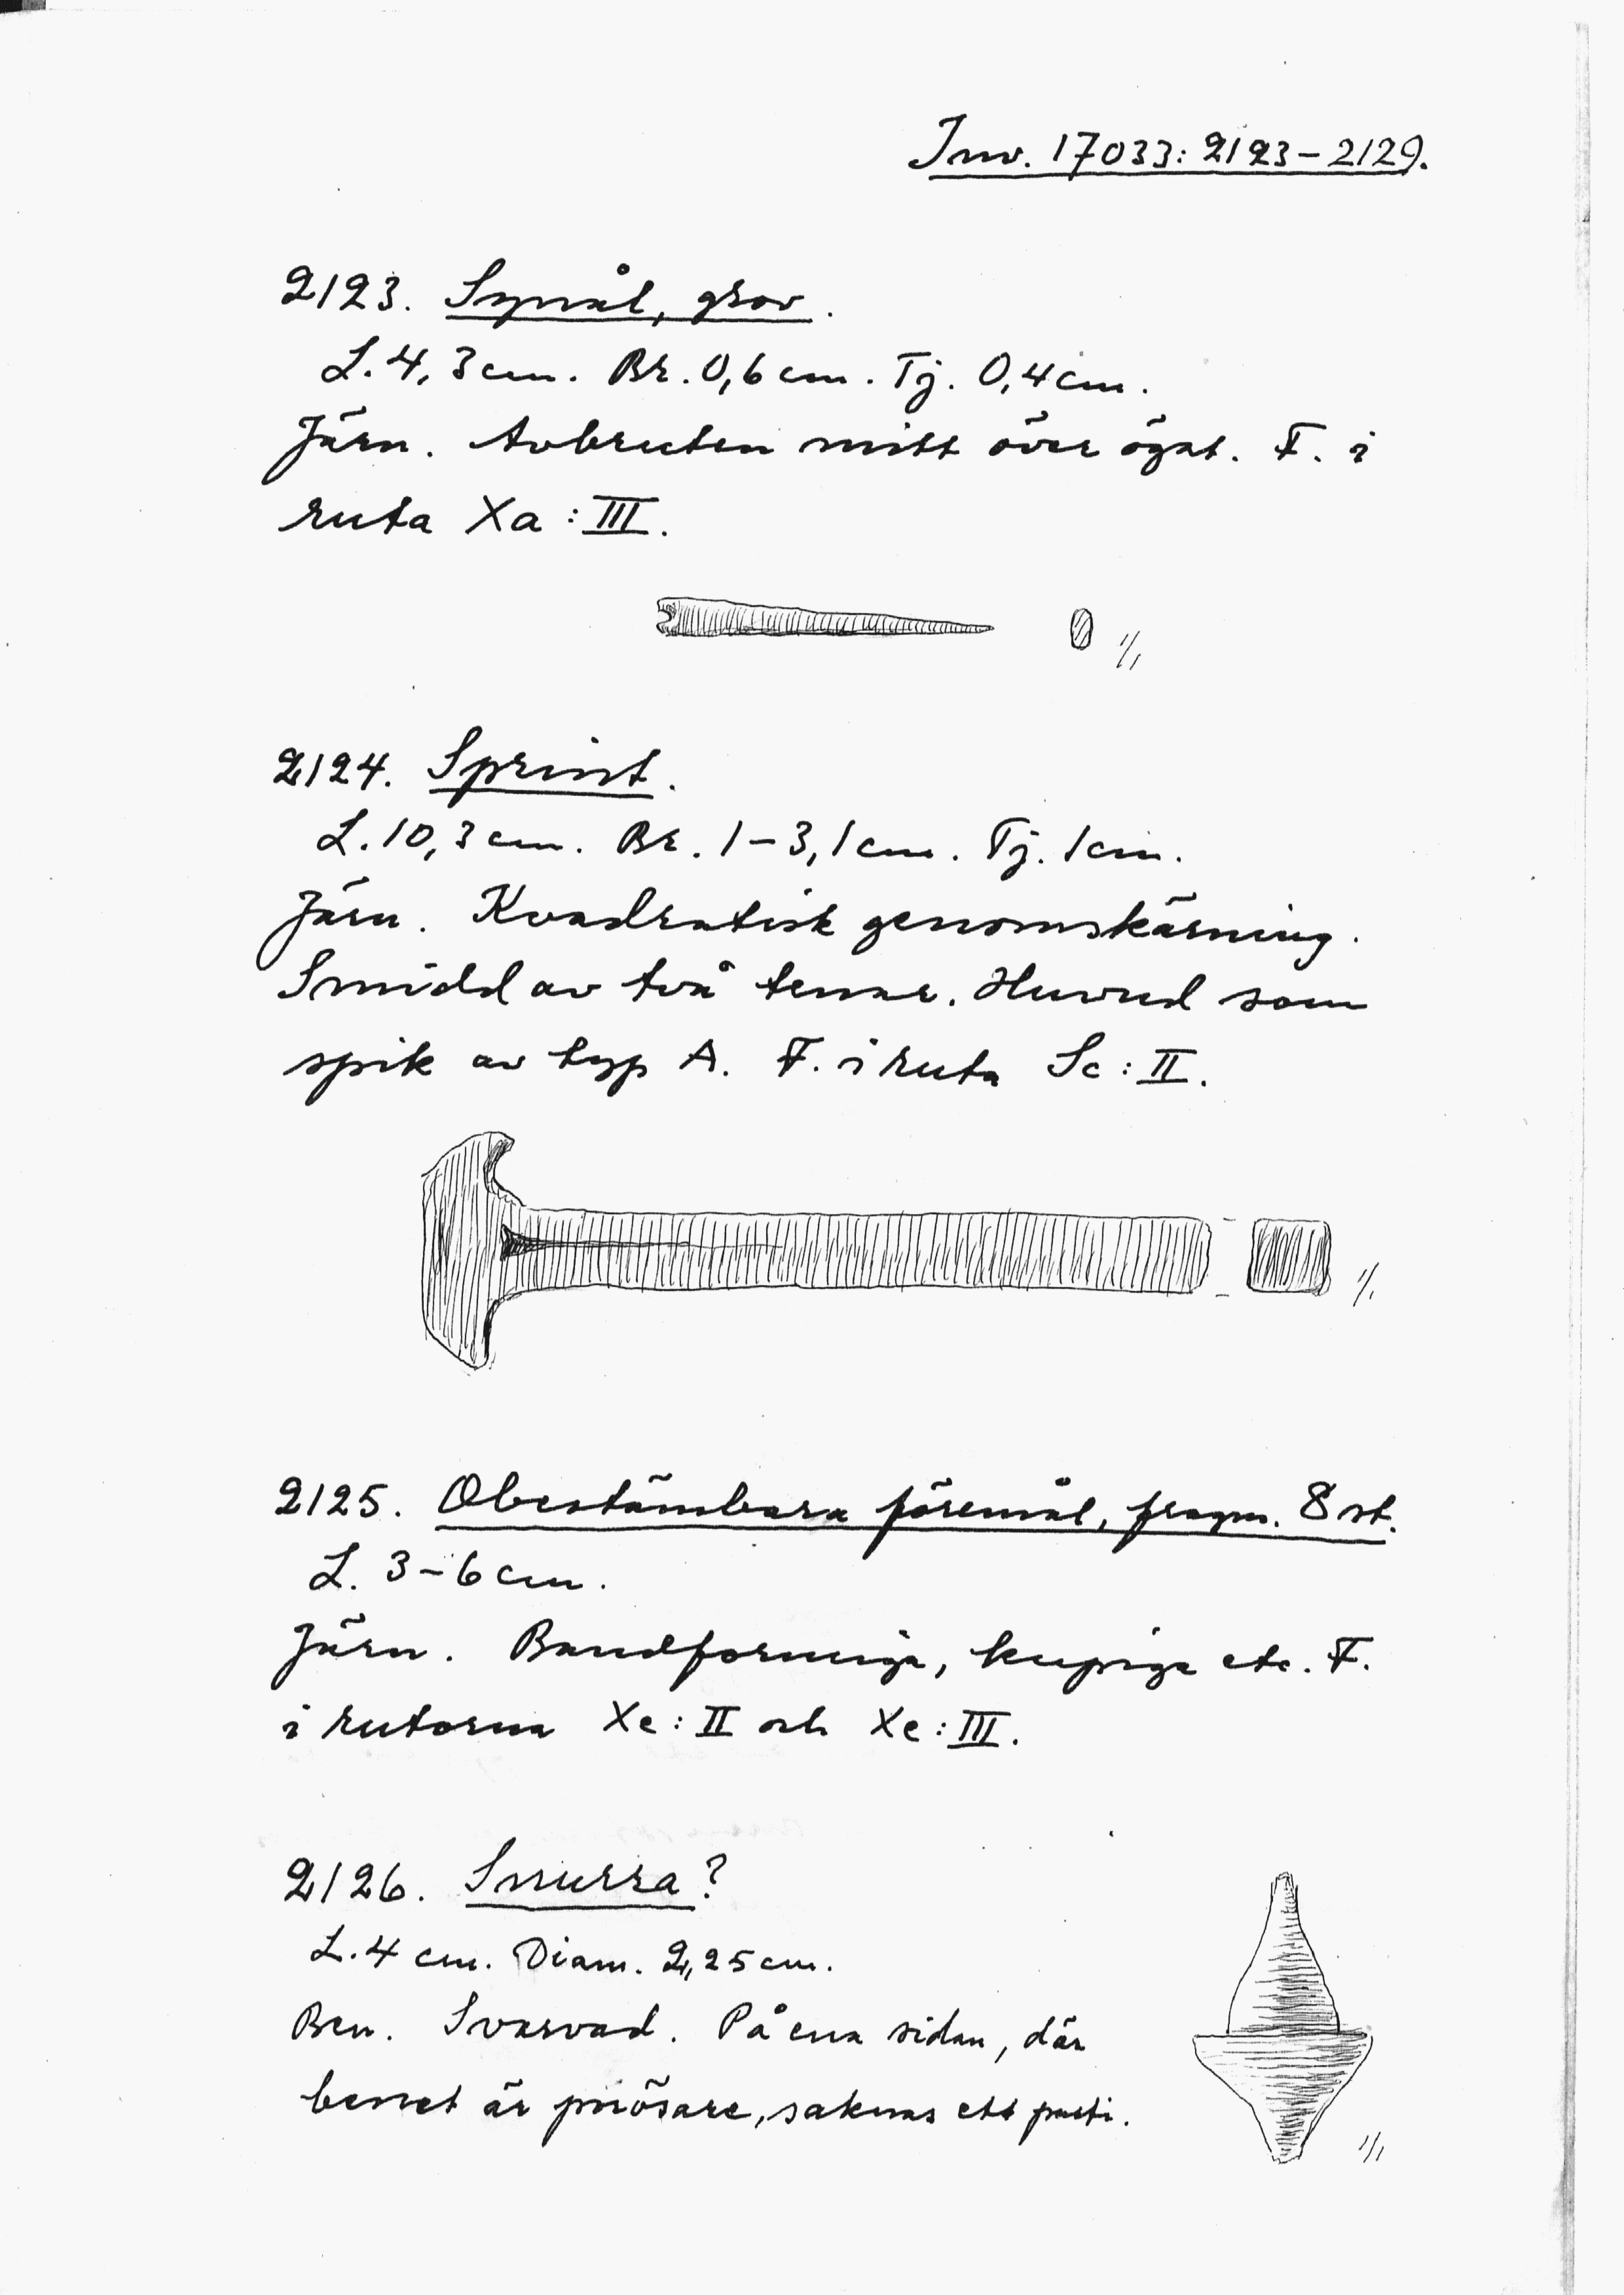 Inv. 17033: 2123-2129.
2123. Synål, grov.
L. 4,3 cm. Br. 0,6 cm. Tj. 0,4 cm.
Järn. Avbruten mitt över ögat. F. i
ruta Xa: III.
1/1
2124. Sprint.
L. 10,3 cm. Br. 1-3,1 cm. Tj. 1 cm.
Järn. Kvadratisk genomskärning.
Smidd av två tenar. Huvud som
spik av typ A. F. i ruta Sc: II.
1/1
2125. Obestämbara föremål, fragm. 8 st.
L. 3-6 cm.
Järn. Bandformiga, kupiga etc. F.
i rutorna Xe: II och Xe: III.
2126. Snurra?
L. 4 cm. Diam. 2,25 cm.
Ben. Svarvad. På ena sidan, där
benet är porösare, saknas ett parti.
1/1